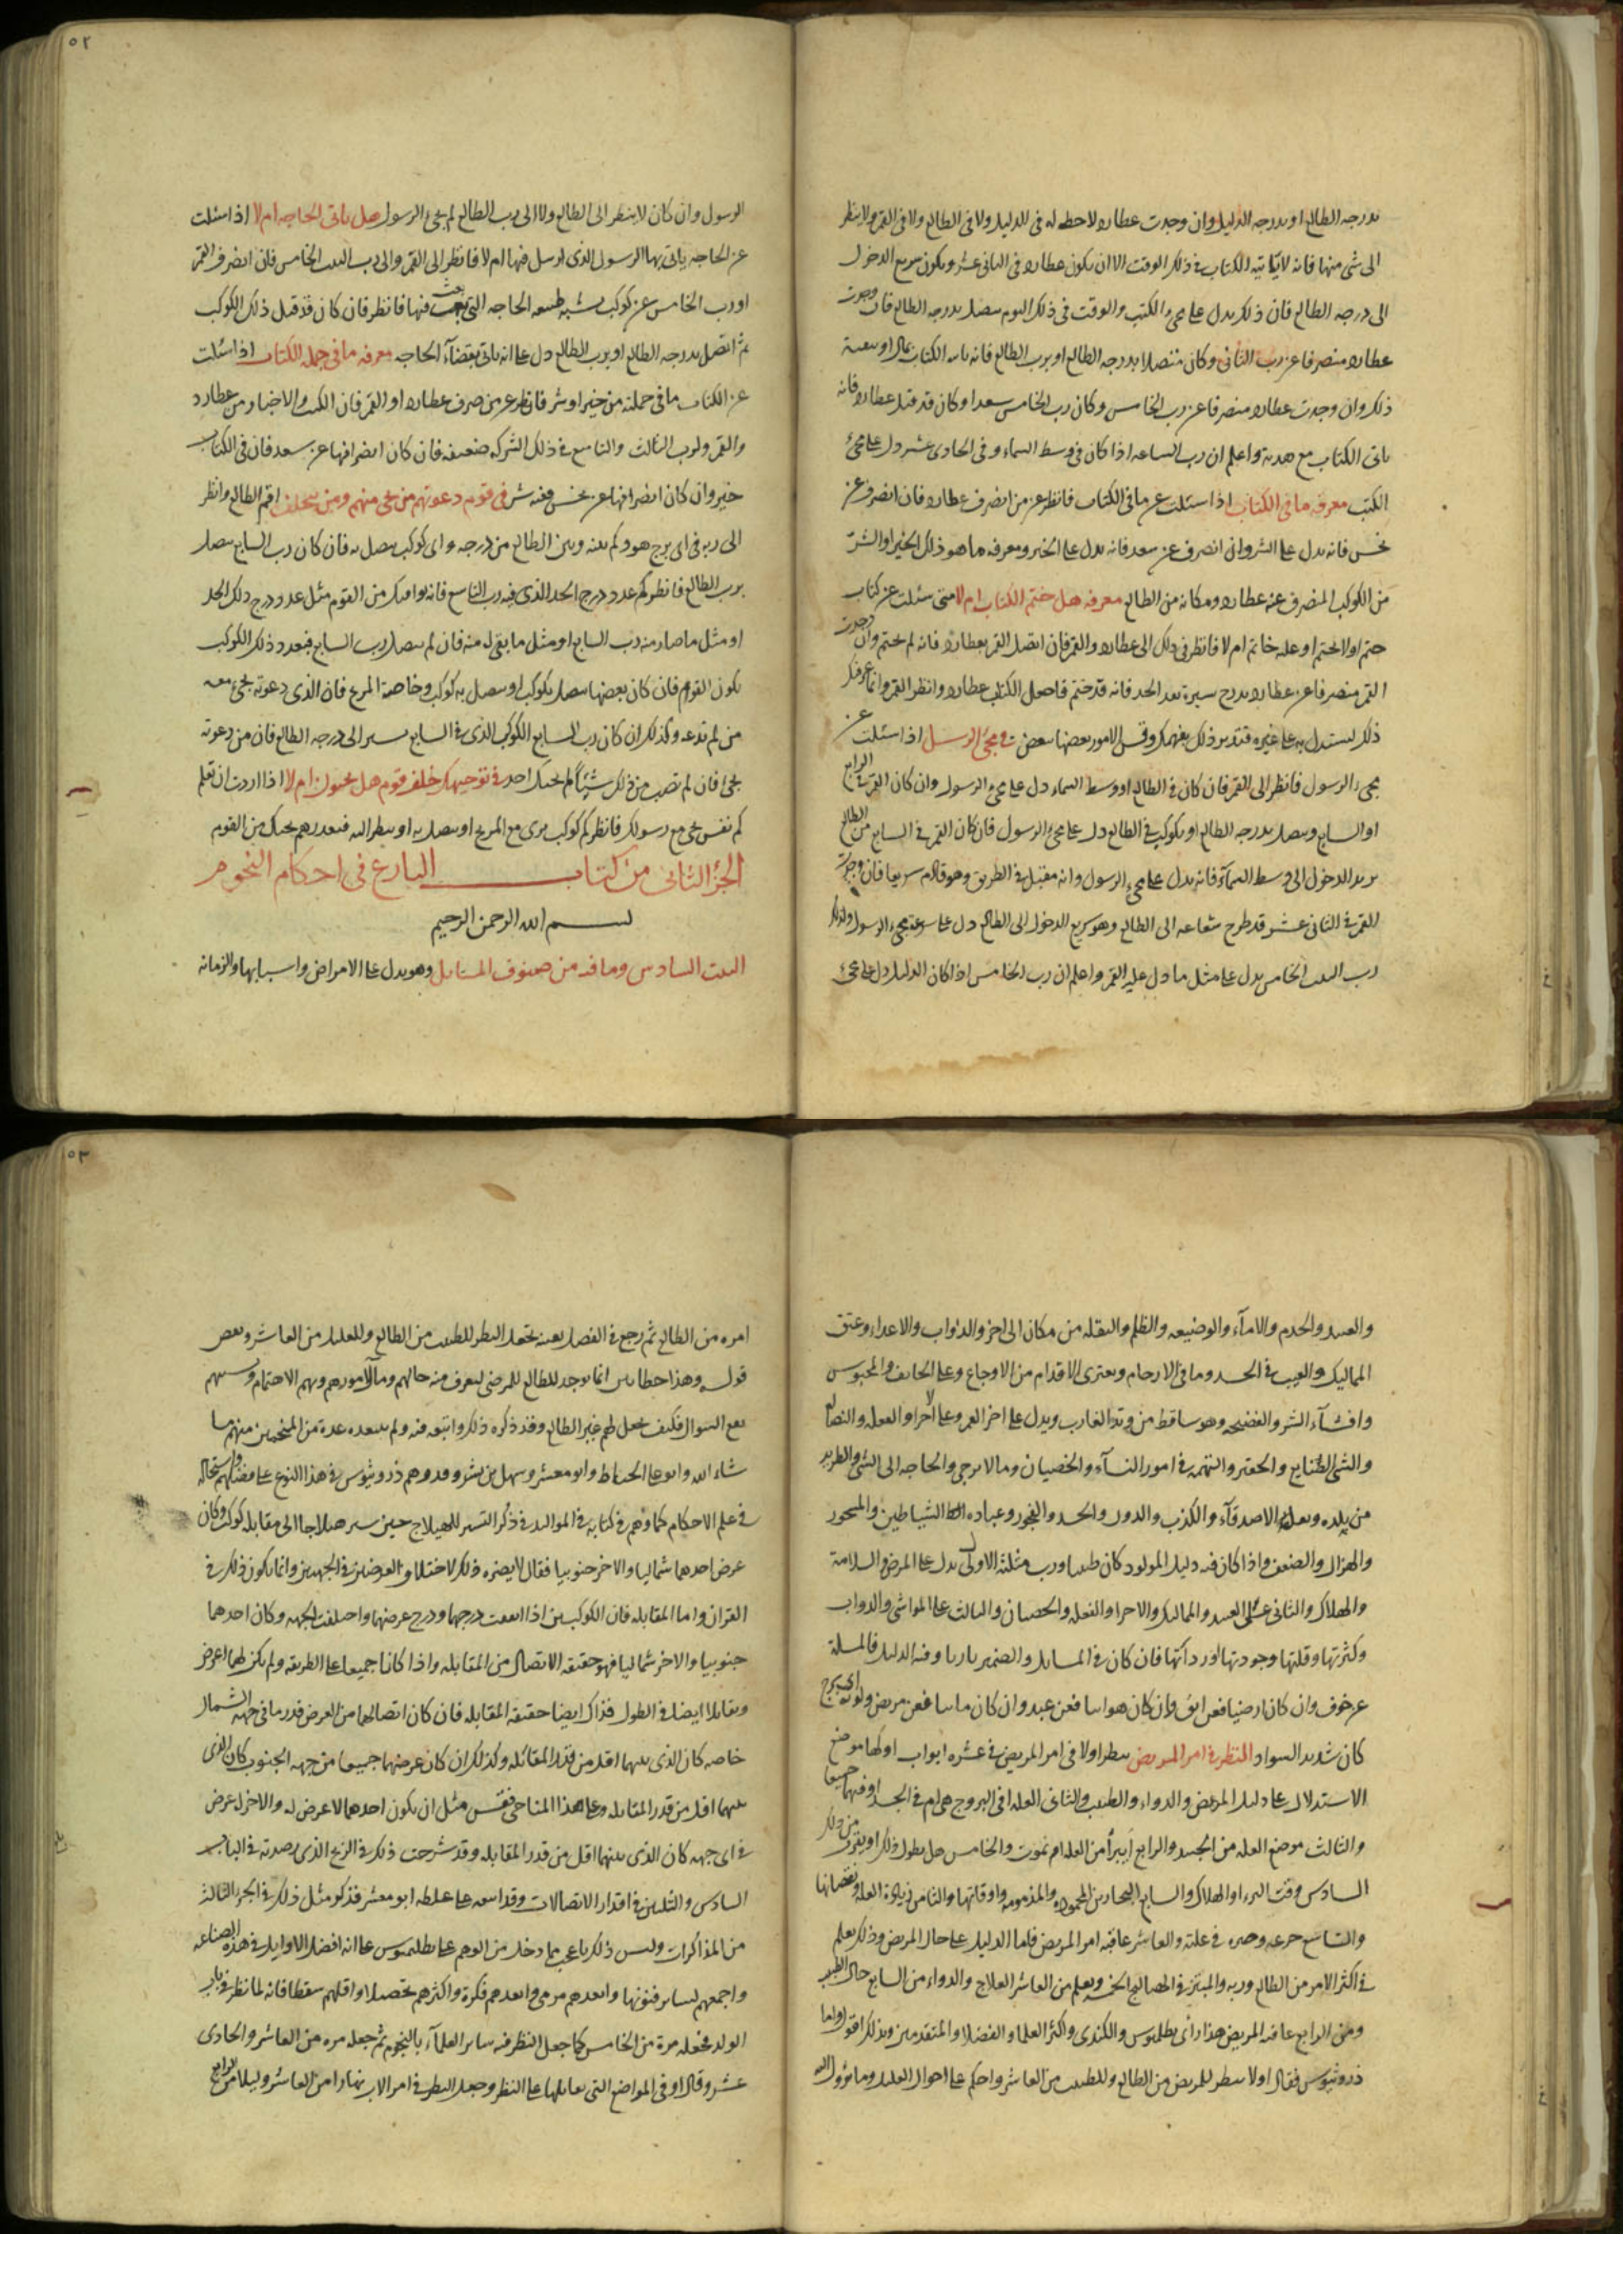 بدرجه الطالع او بدرجه الدليل وان وجدت عطارد لاحظ له فى الدليل ولا فى الطالع ولا فى القمر ولا ينظر
الى شى منها فانه لا ياتيه الكتاب فى ذلك الوقت الا ان يكون عطارد فى الثانى عشر ويكون سريع الدخول
الى درجه الطالع فان ذلك يدل على مجىء الكتب والوقت فى ذلك اليوم يتصل بدرجه الطالع فان وجدت
عطارد منصرفا عن رب الثانى وكان متصلا بدرجه الطالع او برب الطالع فانه ياتيه الكتاب بمال او بسبب
ذلك وان وجدت عطارد منصرفا عن رب الخامس وكان رب الخامس سعدا وكان قد قبل عطارد فانه
ياتى الكتاب مع هديه واعلم ان رب الساعه اذا كان فى وسط السماء و فى الحادى عشر دل على مجىء
الكتب معرفه ما فى الكتاب اذا سئلت عن ما فى الكتاب فانظر عن من انصرف عطارد فان انصرف عن
نحس فانه يدل على الشر وان انصرف عن سعد فانه يدل على الخير ومعرفه ما هو ذلك الخير او الشر
من الكوكب المنصرف عنه عطارد ومكانه من الطالع معرفه هل ختم الكتاب ام لا متى سئلت عن كتاب
ختم او لا يختم او عليه خاتم ام لا فانظر فى ذلك الى عطارد والقمر فان اتصل القمر بعطارد فانه لم يختم وان وجدت
القمر منصرفا عن عطارد بدرج سيره بعد الحد فانه قد ختم فاجعل الكتاب عطارد وانظر القمر وانما عرفتك
ذلك لتستدل به على غيره فتدبر ذلك بفهمك وقس الامور بعضها ببعض فى مجىء الرسل اذا سئلت عن
مجىء الرسول فانظر الى القمر فان كان فى الطالع او وسط السماء دل على مجىء الرسول وان كان القمر فى الرابع
او السابع ويتصل بدرجه الطالع او بكوكب فى الطالع دل على مجىء الرسول فان كان القمر فى السابع من الطالع
يريد الدخول الى وسط السماء فانه يدل على مجىء الرسول وانه مقبل فى الطريق وهو قادم سريعا فان وجدت
القمر فى الثانى عشر قد طرح شعاعه الى الطالع وهو سريع الدخول الى الطالع دل على سرعه مجىء الرسول وكذلك
رب البيت الخامس يدل على مثل ما دل عليه القمر واعلم ان رب الخامس اذا كان الدليل دل على مجىء
٥٢
الرسول وان كان لا ينظر الى الطالع ولا الى رب الطالع لم يجىء الرسول هل ياتى بالحاجه ام لا اذا سئلت
عن الحاجه ياتى بها الرسول الذى ارسل فيها ام لا فانظر الى القمر والى رب البيت الخامس فان انصرف القمر
او رب الخامس عن كوكب يشبه طبيعه الحاجه التى بعث فيها فانظر فان كان قد قبل ذلك الكوكب
ثم اتصل بدرجه الطالع او برب الطالع دل على انه ياتى بقضاء الحاجه معرفه ما فى جمله الكتاب اذا سئلت
عن الكتاب ما فى جملته من خير او شر فانظر عن من صرف عطارد او القمر فان الكتب والاخبار من عطارد
والقمر ولرب الثالث والتاسع فى ذلك الشركه ضعيفه فان كان انصرافها عن سعد فان فى الكتاب
خير وان كان انصرافها عن نحس ففيه شر فى قوم دعوتهم من يجى منهم ومن يتخلف اقم الطالع وانظر
الى ربه فى اى برج هو وكم بينه وبين الطالع من درجه واى كوكب يتصل به فان كان رب السابع يتصل
برب الطالع فانظر كم عدد درج الحد الذى فيه رب التاسع فانه يوافيك من القوم مثل عدد درج ذلك الحد
او مثل ما صار منه رب السابع او مثل ما بقى له منه فان لم يتصل رب السابع فبعدد ذلك الكوكب
يكون القوم فان كان بعضها يتصل بكوكب او يتصل به كوكب وخاصة المريخ فان الذى دعوته يجىء معه
من لم تدعه وكذلك ان كان رب السابع الكوكب الذى فى السابع يسير الى درجه الطالع فان من دعوته
يجىء فان لم تصب من ذلك شيئا لم يجيك احد فى توجيهك خلف قوم هل يجيون ام لا اذا اردت ان تعلم
كم نفس يجى مع رسولك فانظر كم كوكب يرى مع المريخ او يتصل به او ينظر اليه فبعددهم يجيك من القوم
الجزء الثانى من كتاب البارع فى احكام النجوم
بسم الله الرحمن الرحيم
البيت السادس وما فيه من صنوف المسايل وهو يدل على الامراض واسبابها والزمانه
والعبيد والخدم والاماء والوضيعه والظلم والنقله من مكان الى اخر والدواب والاعداء وعتق
المماليك والعيب فى الجسد وما فى الارحام ويعترى الاقدام من الاوجاع وعلى الخايف والمحبوس
وافشاء الشر والفضيحه وهو ساقط من وتد الغارب ويدل على اخر العمر وعلى الاجراء والفعله
والشى الضايع والحقير والتهمه فى امور النساء والخصيان وما لا يرجى والحاجه الى الشى والطريد
من بلده الاصدقاء والكذب والحسد والفجور وعباده الشياطين والمسحور
والهزال والضعف واذا كان فيه دليل المولود كان طبيبا ورب مثلثته الاولى يدل على المرض والسلامة
والهلاك والثانى على العبيد والمماليك والاجراء والفعله والثالث على المواشى والدواب
وكثرتها وقلتها وجودتها ورداتها فان كان فى المسايل والضمير ناريا وفيه الدليل فالمسلة
عن خوف وان كان ارضيا فعن ابق وان كان هواييا فعن عبد وان كان مائيا فعن مريض
كان شديد السواد النظر فى امر المريض ينظر اولا فى امر المريض فى عشره ابواب اولها موضع
الاستدلال على دليل المريض والدواء والطبيب والثانى العله افى الروح هى ام فى الجسد او فيهما جميعا
والثالث موضع العله من الجسد والرابع ايبرأ من العله ام يموت والخامس هل يطول ذلك
السادس وقت البرء او الهلاك والسابع البحارين المحموده والمذمومه واوقاتها والثامن زياده العله ونقصانها
والتاسع فى علته والعاشر عاقبه امر المريض فاما الدليل على حال المريض وذلك يعلم
فى اكثر الامر من الطالع وربه والمبتز فى ويعلم من العاشر العلاج والدواء من السابع حال الطبيب
ومن الرابع عاقبه المريض هذا راى بطلميوس والكندى واكثر العلما والفضلا والمتقدمين
ذروثيوس فقال اولا ينظر للمريض من الطالع وللطبيب من العاشر واحكم على احوال العليل وما يؤول اليه
٥٣
امره من الطالع ثم رجع فى الفصل بعينه يجعل النظر للطبيب من الطالع وللعليل من العاشر
قوله وهذا خطا انما يوجد الطالع للمرضى ليعرف منه حالهم ومآل امورهم
مع السوال فكيف يجعل لهم غير الطالع وقد ذكره ذلك واتبعه فيه ولم بسعده عدة من المنجمين منهم ما
شاء الله وابو على الخياط وابو معشر وسهل بن بشر وقدوهم ذروثيوس فى هذا النوع على
فى علم الاحكام كما وهم فى كتابه فى المواليد فى ذكر التسيير للهيلاج حين سير هيلاجا الى مقابله كوكب وكان
عرض احدهما شماليا والاخر جنوبيا فقال لا يضره ذلك لاختلاف العرضين فى الجهتين وانما يكون ذلك فى
القران واما المقابله فان الكوكبين اذا اتفقت درجهما ودرج عرضهما واختلفت الجهه وكان احدهما
جنوبيا والاخر شماليا فهو حقيقه الاتصال من المقابله واذا كانا جميعا على الطريقه ولم يكن لهما عرض
وتقابلا ايضا فى الطول فذاك ايضا حقيقه المقابله فان كان اتصالهما من العرض قدر ما فى جهه الشمال
خاصه كان الذى بينهما اقل من قدر المقابله وكذلك ان كان عرضهما جميعا من جهه الجنوب كان الذى
بينهما اقل من قدر المقابله وعلى هذا المناحى فقس مثل ان يكون احدهما لا عرض له والاخر له عرض
فى اى جهه كان الذى بينهما اقل من قدر المقابله وقد شرحت ذلك فى الزيج الذى رصدته فى الباب
السادس والثلثين فى اقدار الاتصالات وقد اتبعه على غلطه ابو معشر فذكر مثل ذلك فى الجزء الثالث
من المذاكرات وليس ذلك باعجب مما دخل من الوهم على بطلميوس على انه افضل الاوايل فى هذه الصناعه
واجمعهم لساير فنونها وابعدهم مرمى وابعدهم فكرة واكثرهم تحصيلا واقلهم سقطا فانه لما نظر فى باب
الولد فجعله مرة من الخامس كما جعل النظر فيه ساير العلماء بالنجوم ثم جعله مره من العاشر والحادى
عشر وقال او فى المواضع التى تقابلها على النظر وجعل النظر فى امر الاب نهارا من العاشر وليلا من الرابع